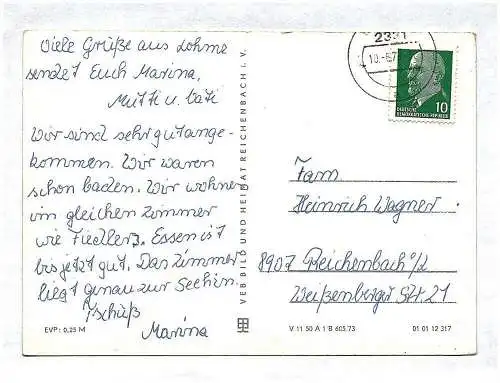 Viele Grüße aus Lohme
sendet Euch Marina,
Mutti u. Vati
Wir sind sehr gut ange-
kommen. Wir waren
schon baden. Wir wohnen
im gleichen Zimmer
wie Fiedlers. Essen ist
bis jetzt gut. Das Zimmer
liegt genau zur See hin.
Tschüß
Marina
EVP: 0,25 M
VEB BILD UND HEIMAT REICHENBACH i. V.
2331
10.-6.7
10
DEUTSCHE
DEMOKRATISCHE REPUBLIK
Fam
Heinrich Wagner
8907 Reichenbach o/L
Weißenberger Str. 21
V 11 50 A 1 B 605/73
01 01 12 317